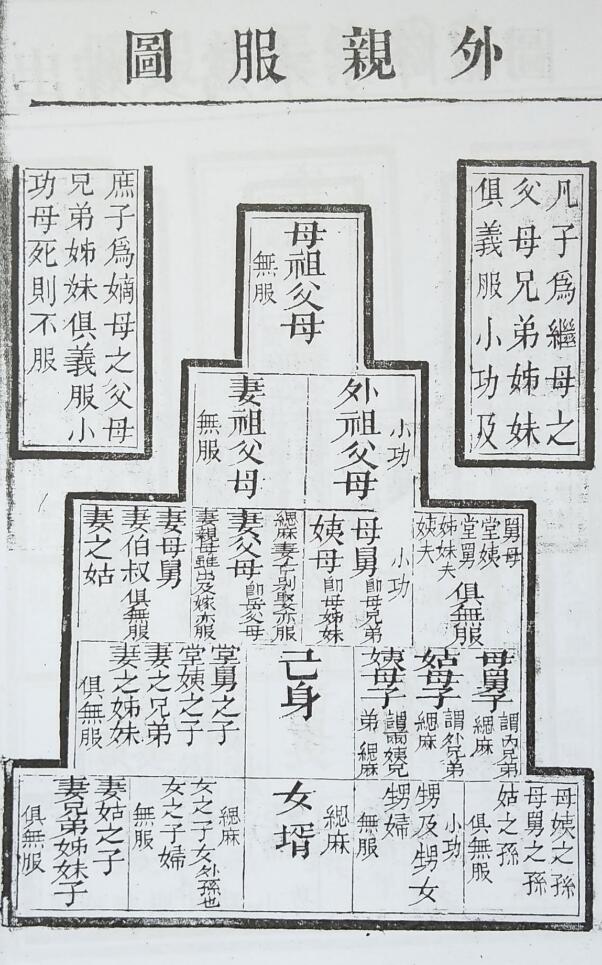 外親服圖
凡子爲繼母之
父母兄弟姊妹
俱義服小功及
庶子爲嫡母之父母
兄弟姊妹俱義服小
功母死則不服
母祖父母
無服
小功
外祖父母
妻祖父母
無服
舅母
堂姨
堂舅
姊妹夫
姨夫
俱無服
小功
母舅即母兄弟
姨母即母姊妹
緦麻妻亡別娶亦服
妻父母即岳父母
妻親母雖出及嫁亦服
妻母舅
妻伯叔俱無服
妻之姑
母舅子謂內兄弟
緦麻
姑母子謂外兄弟
緦麻
姨母子謂兩姨兄
弟緦麻
己身
堂舅之子
堂姨之子
妻之兄弟
妻之姊妹
俱無服
母姨之孫
母舅之孫
姑之孫
俱無服
小功
甥及甥女
甥婦
無服
緦麻
女壻
緦麻
女之子女外孫也
女之子婦
無服
妻姑之子
妻兄弟姊妹子
俱無服